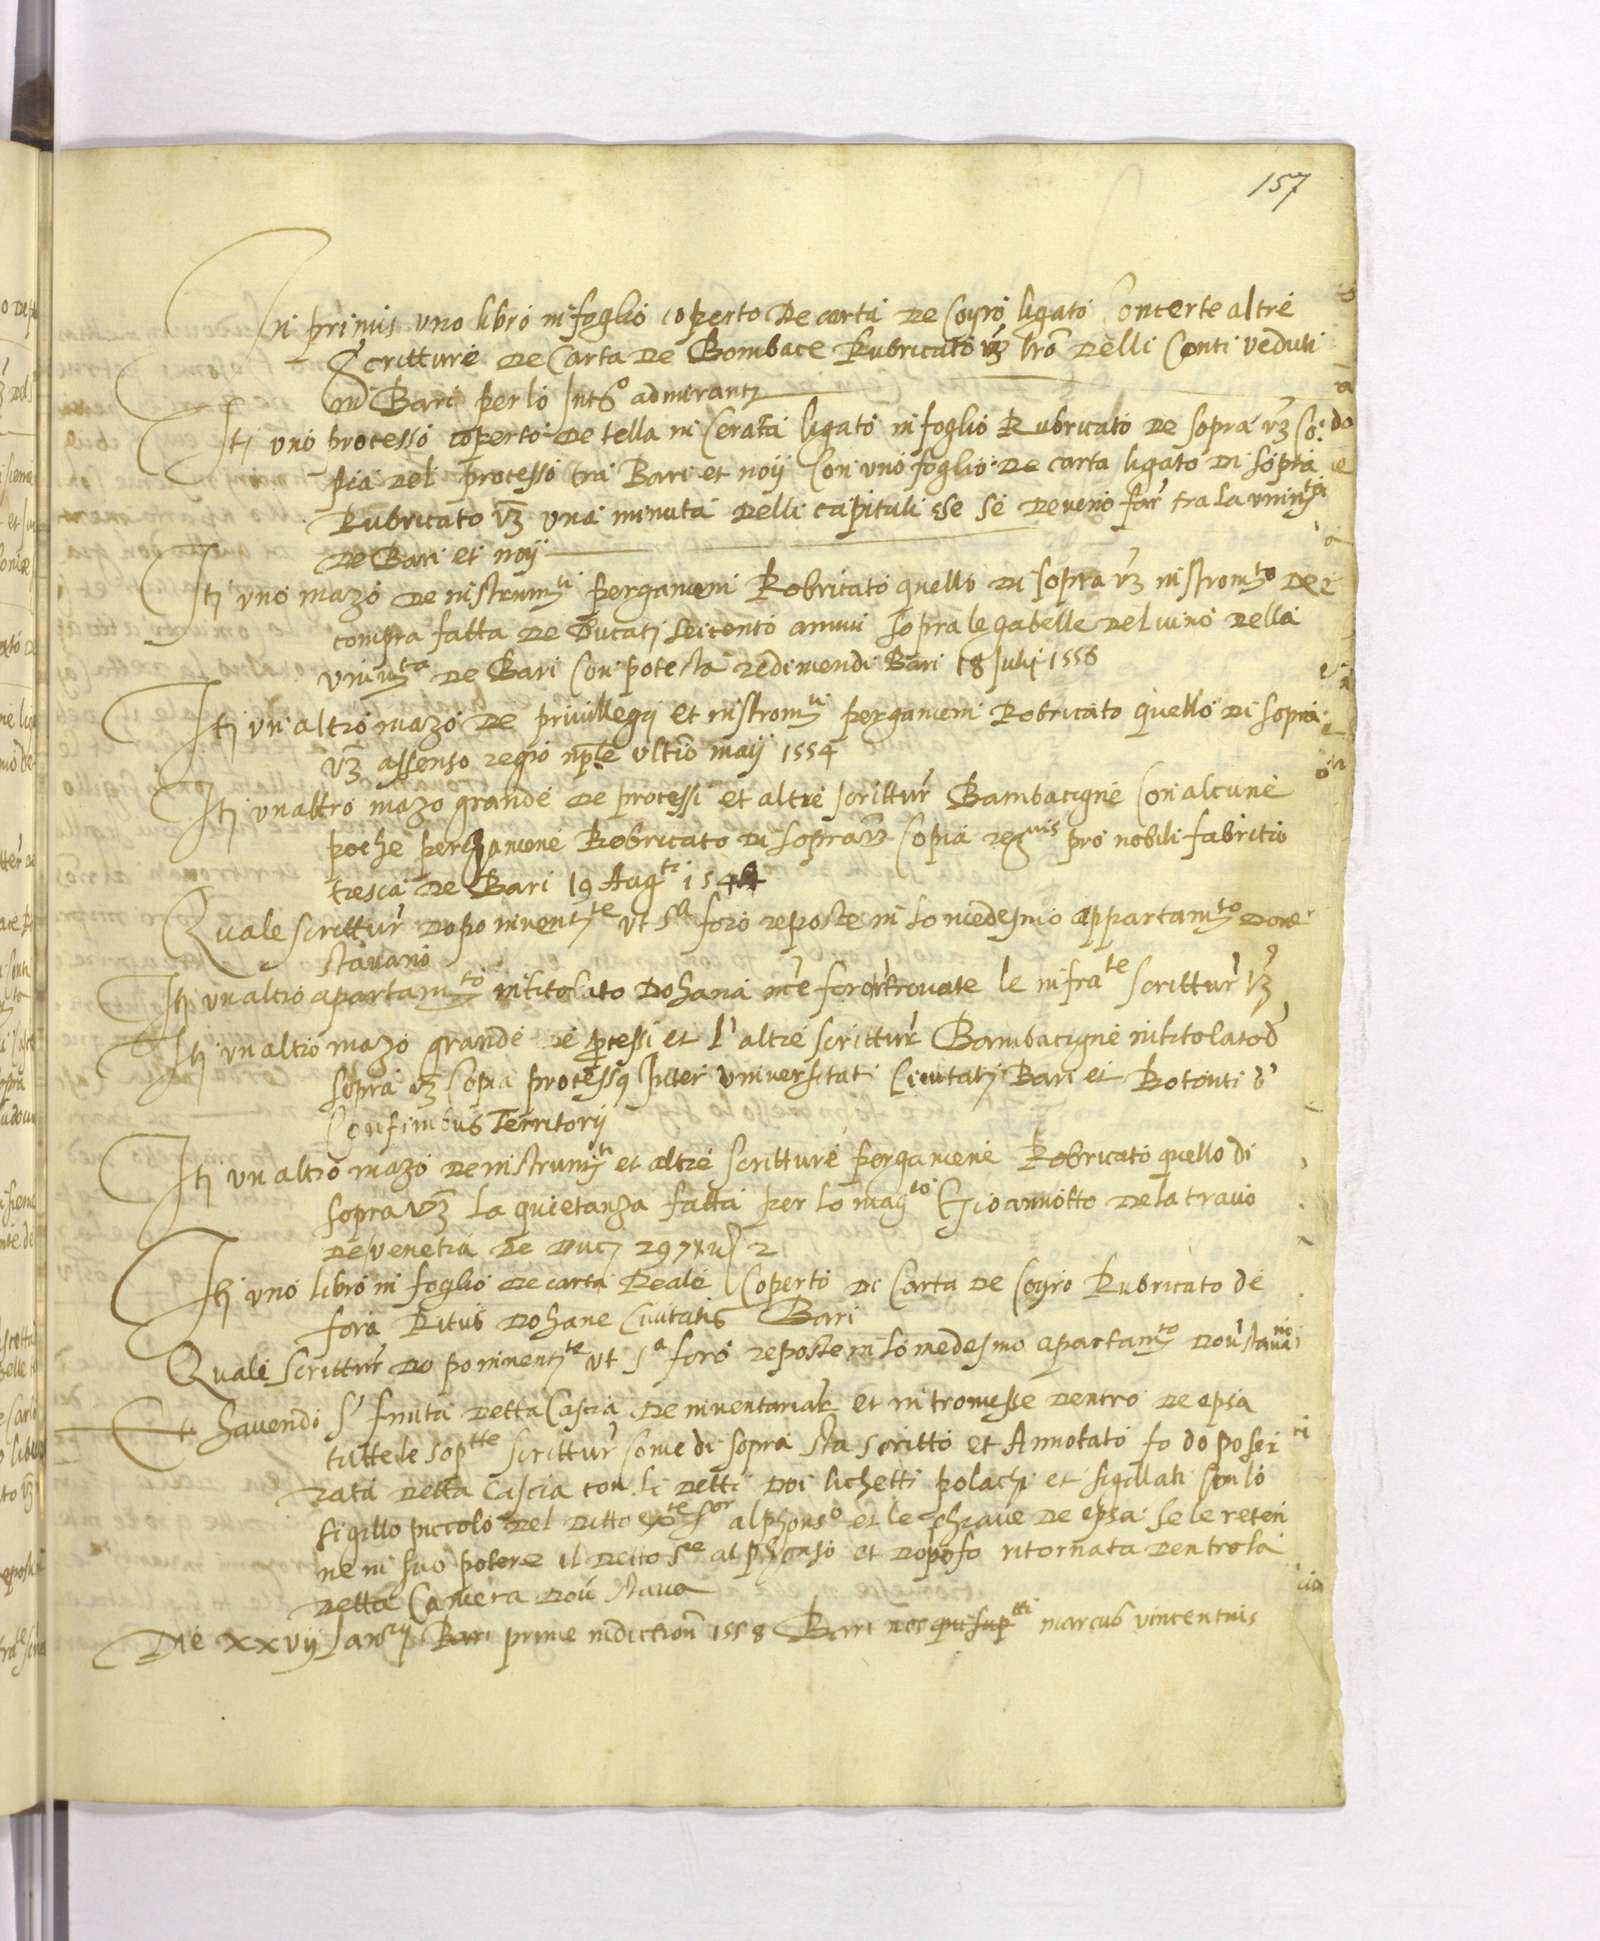 157
In primis uno libro in foglio coperto de carta de Coyro ligato Concerte altre
Scritture de Carta de Bombace Rubricato vz lro delli Conti veduti
in Bari per lo admiranti
Itj uno processo coperto de tella in Cerata ligato in foglio Rubricato de sopra vz Co:
pia del processo tra Bari et noij Con uno foglio de carta ligato di sopra
Rubricato vz una minuta delli capituli che se deveno far tra la univta
de Bari et noij
Itj uno mazo de instrumti pergameni Robricato quello di sopra vz instromto de
compra fatta de Ducatj seicento annui sopra le gabelle del vino della
univta de Bari Con potesta redimendi Bari 18 Julij 1556
Itj un altro mazo de privillegij et instromti pergameni Robricato quello di sopra
vz assenso regio ultio maij 1554
Itj un altro mazo grande de processi et altre scrittur Bambacigne Con alcune
poche perchamene Robricato di sopra vz Copia pro nobili fabritio
tresca de Bari 19 Augti
Quale scrittur dopo inventte ut sa foro reposte in lo medesmo appartamto dove
stavano
Itj un altro apartamto intitolato Dohana foro trovate le infrate scrittur vz
Itj un altro mazo grande de pcessi et l' altre scrittur Bambacigne intitolato d'
sopra vz Copia processus Inter universitatj Civitatj Bari et Botonti d'
Confinibus Territorij
Itj un altro mazo de instrumti et altre scritture pergamene Robricato quello di
sopra vz la quietanza fatta per lo magco Gioannotto de la travo
de venetia de Ducj 297
Itj uno libro in foglio de carta Reale Coperto di Carta de Coyro Rubricato de
fora Ritus Dohane Civitatis Bari
Quale scrittur dopo inventte ut sa foro reposte in lo medesmo apartamto dov' stavano
Et havendo s' finita detta Cascia de inventariar et intromesse dentro de epsa
tutte le soptte scrittur come di sopra sta scritto et Annotato fo dopo ser
rata detta Cascia con li detti doi lichetti polachi et sigillati con lo
sigillo piccolo del ditto Sor alphonso et le chiave de epsa se le reten
ne in suo potere il detto Sre alphonso et dopo fo ritornata dentro la
detta Camera dov' stava
Die xxvij Janrij Bari prime indiction 1558 Bari nos qui suptti marcus vincentius